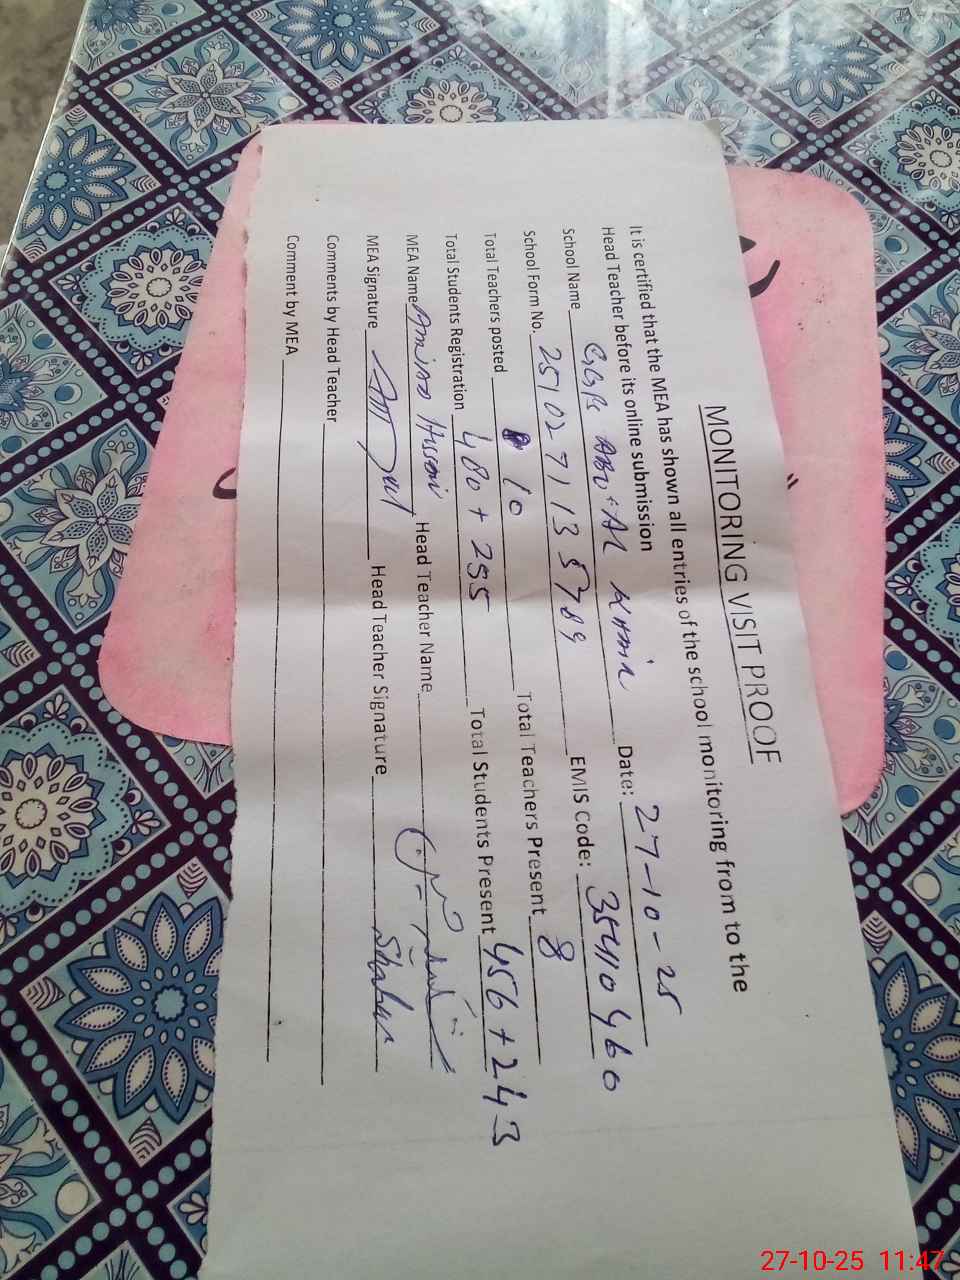 MONITORING VISIT PROOF
It is certified that the MEA has shown all entries of the school monitoring from to the
Head Teacher before its online submission
School Name GGPS Abu Al Date: 27-10-25
School Form No. 2510271135789 EMIS Code: 35410460
Total Teachers posted 10 Total Teachers Present 8
Total Students Registration 480+255 Total Students Present 456+243
MEA Name Amina Head Teacher Name
MEA Signature Head Teacher Signature
Comments by Head Teacher
Comment by MEA
27-10-25 11:47